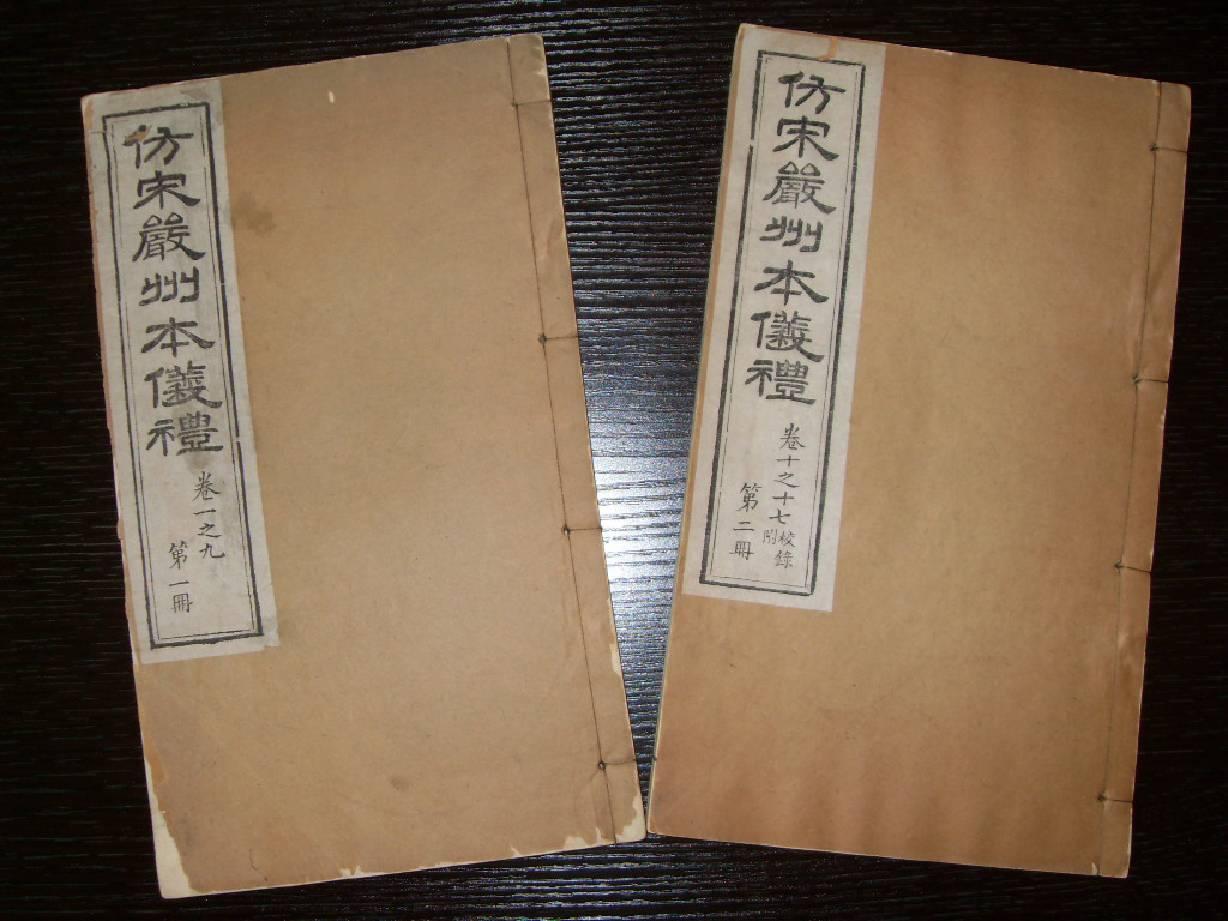 仿宋嚴州本儀禮
卷一之九
第一冊
仿宋嚴州本儀禮
卷十之十七校錄附
第二冊